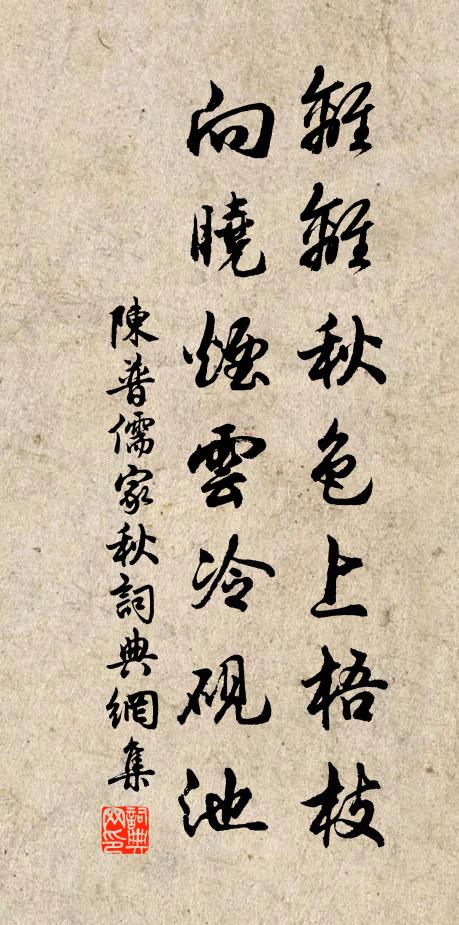 離離秋色上梧枝
向曉煙雲冷硯池
陳普儒家秋詞典網集
詞典網印